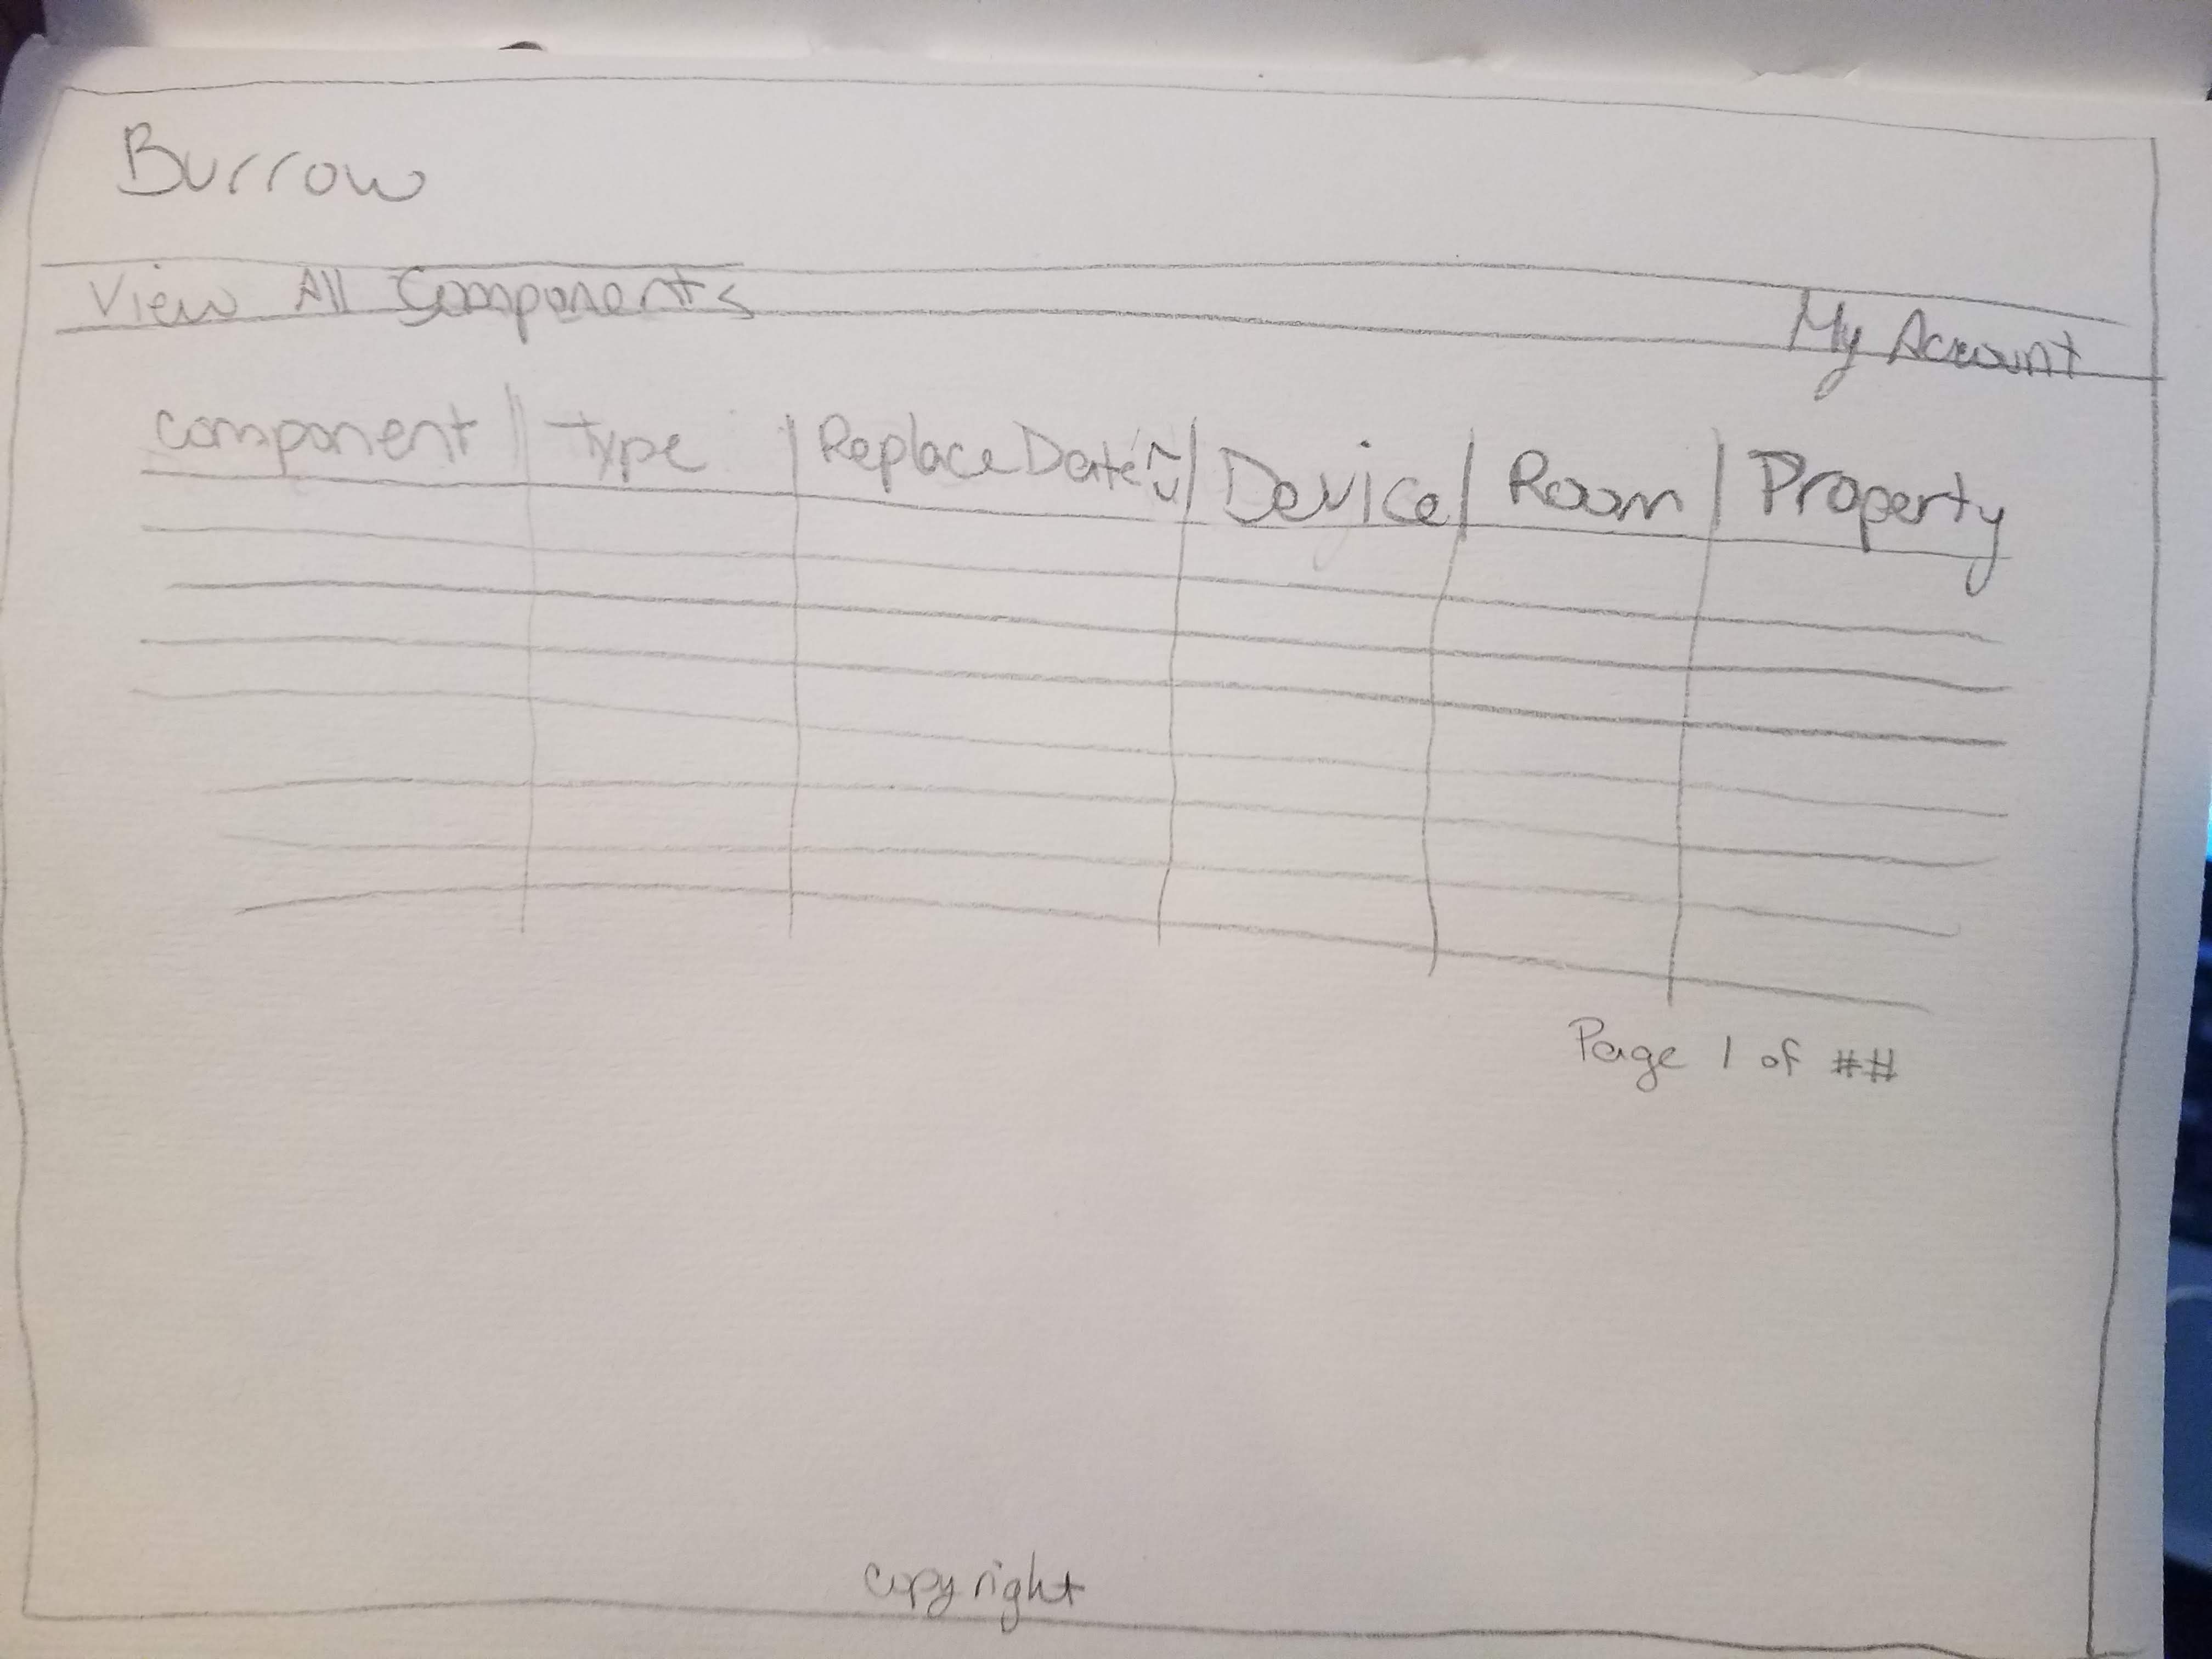 Burrow
View All Components My Account
component Type Replace Date Device Room Property
Page 1 of ##
copyright